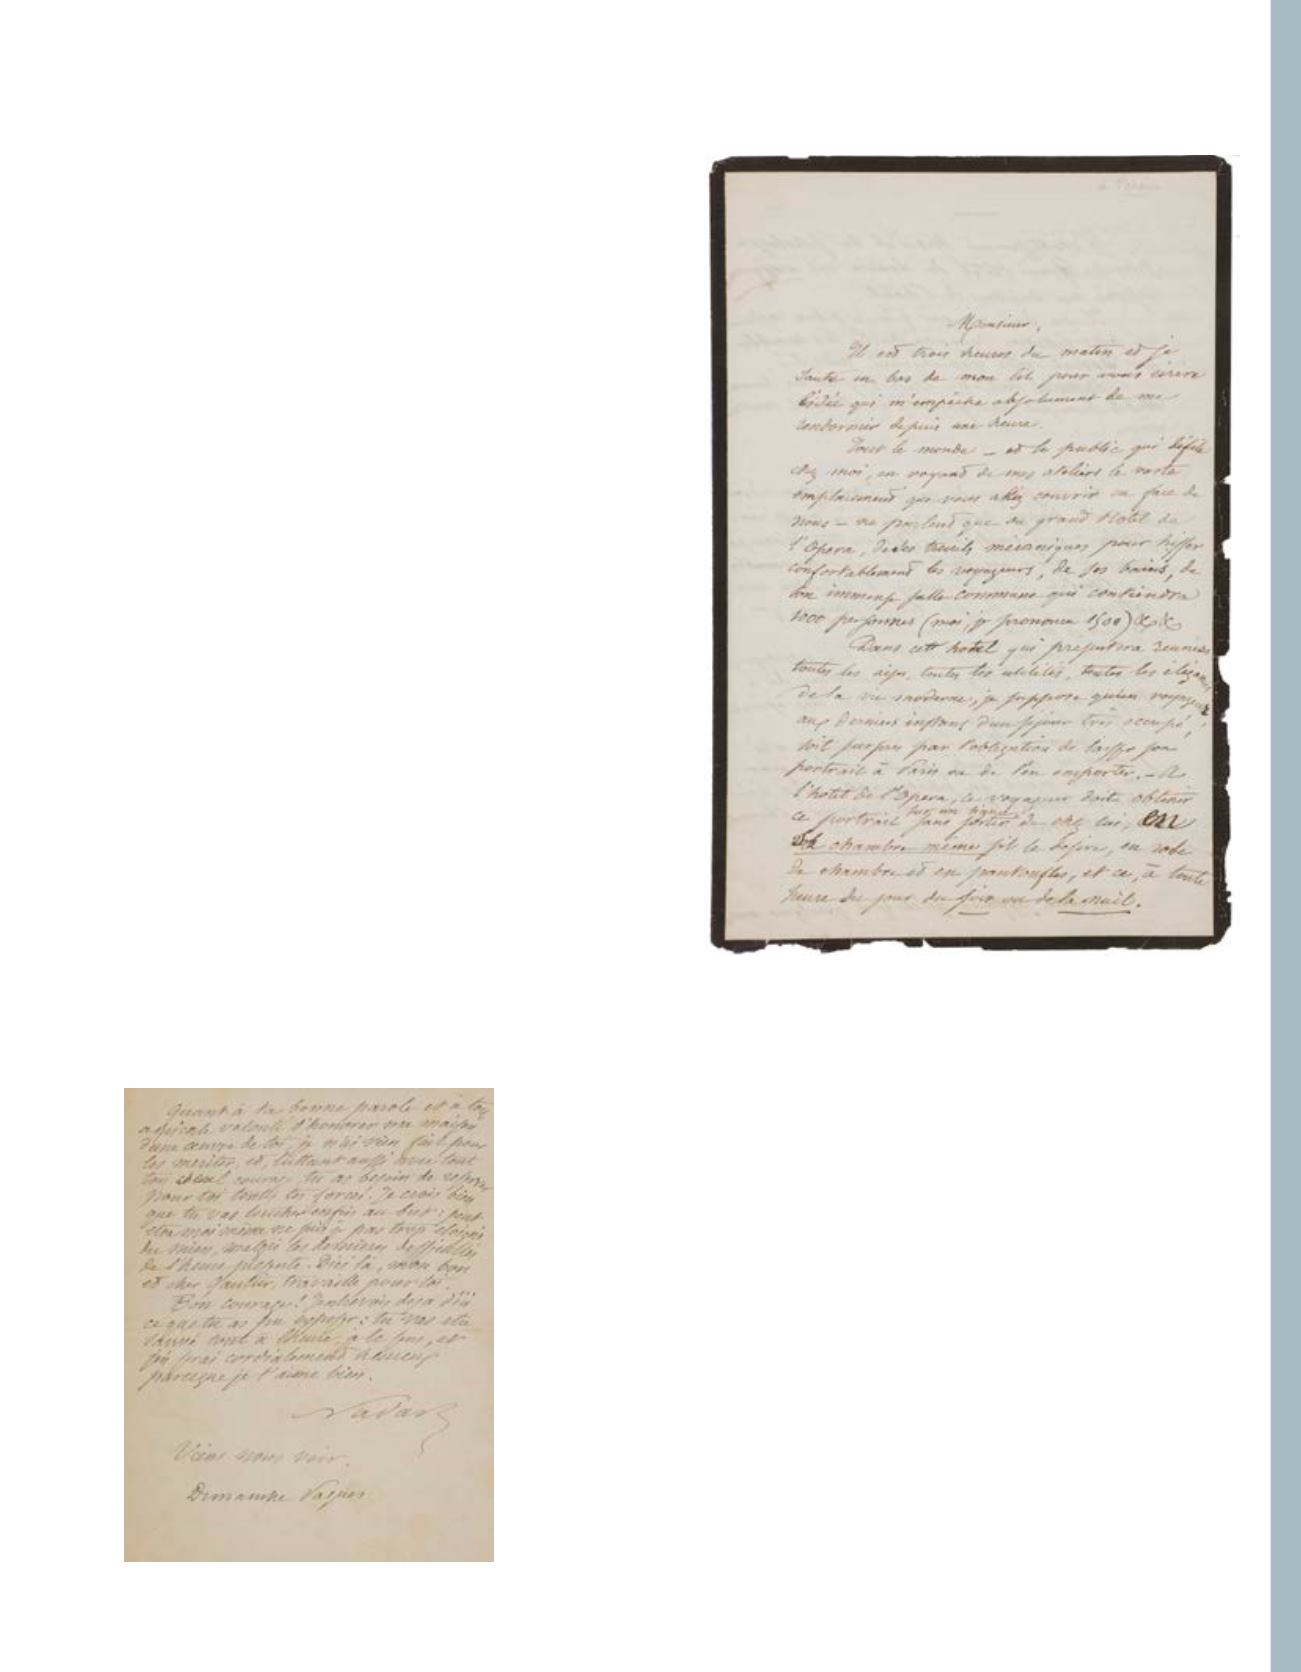 Monsieur,
Il est trois heures du matin et je
saute en bas de mon lit pour vous écrire
l'idée qui m'empêche absolument de me
rendormir depuis une heure.
Tout le monde – et le public qui défile
chez moi, en voyant de mes ateliers le vaste
emplacement que vous allez couvrir en face de
nous – ne parlent que du grand Hotel de
l'Opera, de ses treuils mécaniques pour hisser
confortablement les voyageurs, de ses bains, de
son immense salle commune qui contiendra
1000 personnes (moi, je prononce 1500) &&
Dans cet hotel qui présentera réunies
toutes les aises, toutes les utilités, toutes les élégances
de la vie moderne, je suppose qu'un voyageur
aux derniers instans d'un séjour très occupé,
soit surpris par l'obligation de laisser son
portrait à Paris ou de l'en emporter. – A
l'hotel de l'Opera, ce voyageur doit obtenir
sur un signe
ce portrait sans sortir de chez lui, en
chambre même s'il le desire, en robe
de chambre et en pantoufles, et ce, à toute
heure du jour du soir ou de la nuit.
Quant à ta bonne parole et à ta
amicale volonté d'honorer ma maison
d'une œuvre de toi, je n'ai rien fait pour
les meriter, et, luttant aussi avec tout
ton courage, tu as besoin de
pour toi toutes tes forces. Je crois bien
que tu vas toucher enfin au but : peut
etre moi même ne suis je pas trop eloigné
du mien, malgré les dernieres difficultés
de l'heure présente. D'ici là, mon bon
et cher Gautier, travaille pour toi.
Bon courage! J'entrevois deja d'ici
ce que tu as pu exposer : tu vas etre
sauvé tout à l'heure, et
j'en serai cordialement heureux
parceque je t'aime bien.
Nadar
Viens nous voir.
Dimanche Pasques